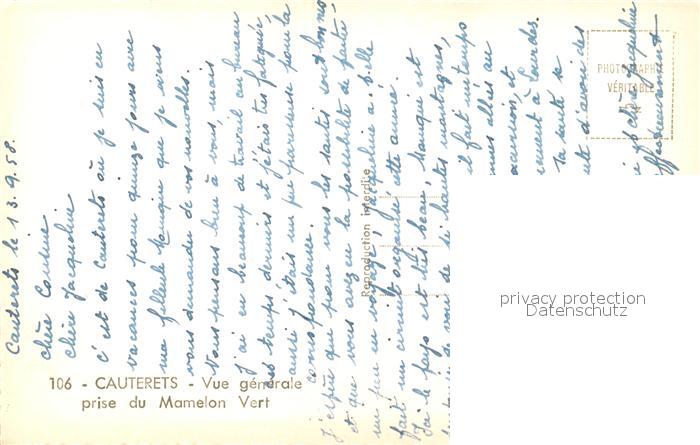 Cauterets le 13.9.58.
chère Cousine
chère Jacqueline
c'est de Cauterets où je suis en
vacances pour quinze jours avec
ma filleule Monique que je viens
vous demander de vos nouvelles.
Vous pensons bien à vous, mais
j'ai eu beaucoup de travail au bureau
ces temps derniers et j'étais très fatiguée,
aussi j'étais un peu paresseuse pour la
correspondance.
J'espère que pour vous les santés sont bonnes
et que vous avez eu la possibilité de partir
un peu en voyage, Jacqueline a-t-elle
fait un circuit organisé cette année.
Ici le pays est très beau, Monique est
de se voir de si hautes montagnes,
il fait un temps
allées au
excursion, et
à Lourdes.
Ta santé se
d'avoir des
chère Jacqueline
affectueusement
106 - CAUTERETS - Vue générale
prise du Mamelon Vert
Reproduction interdite
PHOTOGRAPHIE
VÉRITABLE
privacy protection
Datenschutz